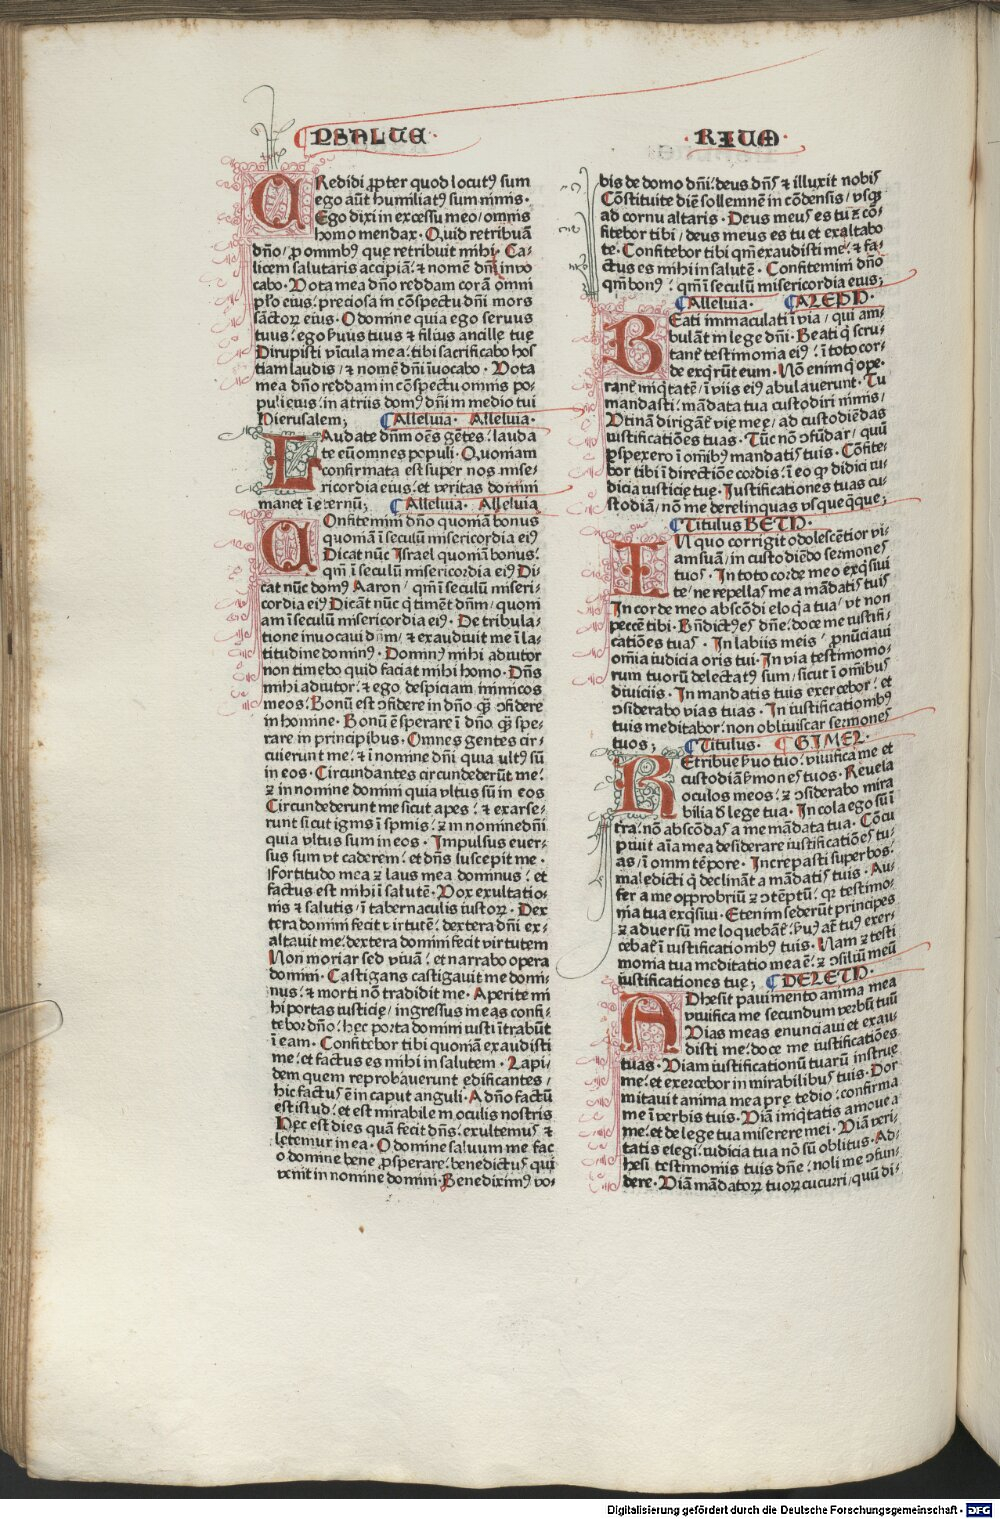 PSALTE
RIUM
CRedidi ꝓpter quod locutꝰ sum
ego aũt humiliatꝰ sum nimis ·
Ego dixi in excessu meo / omnis
homo mendax · Quid retribuã
dño / ꝓ omnibꝰ que retribuit mihi · Ca-
licem salutaris accipiã : ⁊ nomẽ dñi inuo
cabo · Uota mea dño reddam corã omni
pl̃o eius : preciosa in cõspectu dñi mors
sãctoꝝ eius · O domine quia ego seruus
tuus : ego ẜuus tuus ⁊ filius ancille tuę
Dirupisti vĩcula mea : tibi sacrificabo hos
tiam laudis / ⁊ nomẽ dñi ĩuocabo · Uota
mea dño reddam in cõspectu omnis po-
puli eius : in atriis domꝰ dñi m medio tui
Hierusalem ; Alleluia · Alleluia ·
LAudate dñm oẽs gẽtes : lauda
te eũ omnes populi · Quoniam
confirmata est super nos mise-
ricordia eius : et veritas domini
manet ĩ eternũ ; Alleluia · Alleluia
COnfitemini dño quoniã bonus
quoniã ĩ seculũ misericordia eiꝰ
Dicat nũc Israel quoniã bonus :
qm̃ ĩ seculũ misericordia eiꝰ Di-
cat nũc domꝰ Aaron / qm̃ ĩ seculũ miseri-
cordia eiꝰ Dicãt nũc q̃ timẽt dñm / quoni
am ĩ seculũ misericordia eiꝰ · De tribula-
tione inuocaui dñm / ⁊ exaudiuit me ĩ la-
titudine dominꝰ · Dominꝰ mihi adiutor
non timebo quid faciat mihi homo · Dñs
mihi adiutor : ⁊ ego despiciam inimicos
meos · Bonũ est ↄfidere in dño q̃ ↄfidere
in homine · Bonũ ẽ sperare ĩ dño q̃ spe-
rare in principibus · Omnes gentes cir-
cuierunt me : ⁊ ĩ nomine dñi quia ultꝰ sũ
in eos · Circundantes circundederũt me :
⁊ in nomine domini quia vltus sũ in eos
Circundederunt me sicut apes : ⁊ exarse-
runt sicut ignis ĩ spinis : ⁊ in nomine dñi
quia vltus sum in eos · Impulsus euer-
sus sum vt caderem : et dñs suscepit me ·
Fortitudo mea ⁊ laus mea dominus : et
factus est mihi ĩ salutẽ · Uox exultatio-
nis ⁊ salutis / ĩ tabernaculis iustoꝝ · Dex
tera domini fecit virtutẽ : dextera dñi ex-
altauit me : dextera domini fecit virtutem
Non moriar sed viuã : et narrabo opera
domini · Castigans castigauit me domi-
nus : ⁊ morti nõ tradidit me · Aperite mi
hi portas iusticię / ingressus meas confi-
tebor dño : hęc porta domini iusti ĩtrabũt
ĩ eam · Confitebor tibi quoniã exaudisti
me : et factus es mihi in salutem · Lapi-
dem quem reprobauerunt edificantes /
hic factus ẽ in caput anguli · A dño factũ
est istud : et est mirabile m oculis nostris
Hęc est dies quã fecit dñs : exultemus ⁊
lętemur in ea · O domine saluum me fac
o domine bene ꝓsperare : benedictus qui
venit in nomine domini · Benediximꝰ vo-
bis de domo dñi : deus dñs ⁊ illuxit nobis
Cõstituite diẽ sollemnẽ in cõdensis / vsqꝫ
ad cornu altaris · Deus meus es tu ⁊ cõ-
fitebor tibi / deus meus es tu et exaltabo
te · Confitebor tibi qm̃ exaudisti me : ⁊ fa-
ctus es mihi in salutẽ · Confitemini dño
qm̃ bonꝰ : qm̃ ĩ seculũ misericordia eius ;
Alleluia · ALEPH ·
BEati immaculati ĩ via / qui am-
bulãt m lege dñi · Beati q̃ scru-
tant̃ testimonia eiꝰ : ĩ toto cor-
de exq̃rũt eum · Nõ enim q̃ ope-
rant̃ iniq̃tatẽ / ĩ viis eiꝰ abulauerunt · Tu
mandasti : mãdata tua custodiri nimis /
Utinã dirigãt̃ vię mee / ad custodiẽdas
iustificatiões tuas · Tũc nõ ↄfũdar / quũ
ꝑspexero ĩ om̃ibꝰ mandatis tuis · Cõfite-
bor tibi ĩ directiõe cordis : ĩ eo ꝙ didici iu-
dicia iusticię tuę · Iustificationes tuas cu-
stodiã / nõ me derelinquas vsquequęque ;
Titulus BETH ·
IN quo corrigit odolescẽtior vi-
am suã / in custodiẽdo sermones
tuos · In toto corde meo exq̃siui
te / ne repellas me a mãdatis tuis
In corde meo abscõdi eloq̃a tua / vt non
peccẽ tibi · Bñdictus es dñe : doce me iustifi-
catiões tuas · In labiis meis / ꝓnũciaui
om̃ia iudicia oris tui · In via testimonio-
rum tuorũ delectatꝰ sum / sicut ĩ om̃ibus
diuiciis · In mandatis tuis exercebor : et
ↄsiderabo vias tuas · In iustificationibꝰ
tuis meditabor : non obliuiscar sermones
tuos ; Titulus · GIMEL ·
REtribue ẜuo tuo / viuifica me et
custodiã ẜmones tuos · Reuela
oculos meos : ⁊ ↄsiderabo mira
bilia đ lege tua · Incola ego sũ ĩ
tr̃a : nõ abscõdas a me mãdata tua · Cõcu
piuit aĩa mea desiderare iustificatiões tu-
as / ĩ omni tẽpore · Increpasti superbos :
maledicti q̃ declinãt a mãdatis tuis · Au-
fer a me opprobriũ ⁊ ↄtẽptũ : qꝛ testimo-
nia tua exq̃siui · Etenim sederũt principes
⁊ aduersũ me loquebãt̃ : ẜuꝰ at̃ tuꝰ exer-
cebat̃ ĩ iustificationibꝰ tuis · Nam ⁊ testi
monia tua meditatio mea ẽ : ⁊ ↄsiliũ meũ
iustificationes tuę ; DELETH ·
ADhesit pauimento anima mea
viuifica me secundum verbũ tuũ
Uias meas enunciaui et exau-
disti me : doce me iustificatiões
tuas · Uiam iustificationũ tuarũ instrue
me : et exercebor in mirabilibus tuis · Dor
mitauit anima mea prę tedio : confirma
me ĩ verbis tuis · Uiã iniq̃tatis amoue a
me : et de lege tua miserere mei · Uiã veri-
tatis elegi : iudicia tua nõ sũ oblitus · Ad-
hesi testimoniis tuis dñe : noli me ↄfun-
dere · Uiã mãdatoꝝ tuoꝝ cucurri / quũ di-
Digitalisierung gefördert durch die Deutsche Forschungsgemeinschaft - DFG